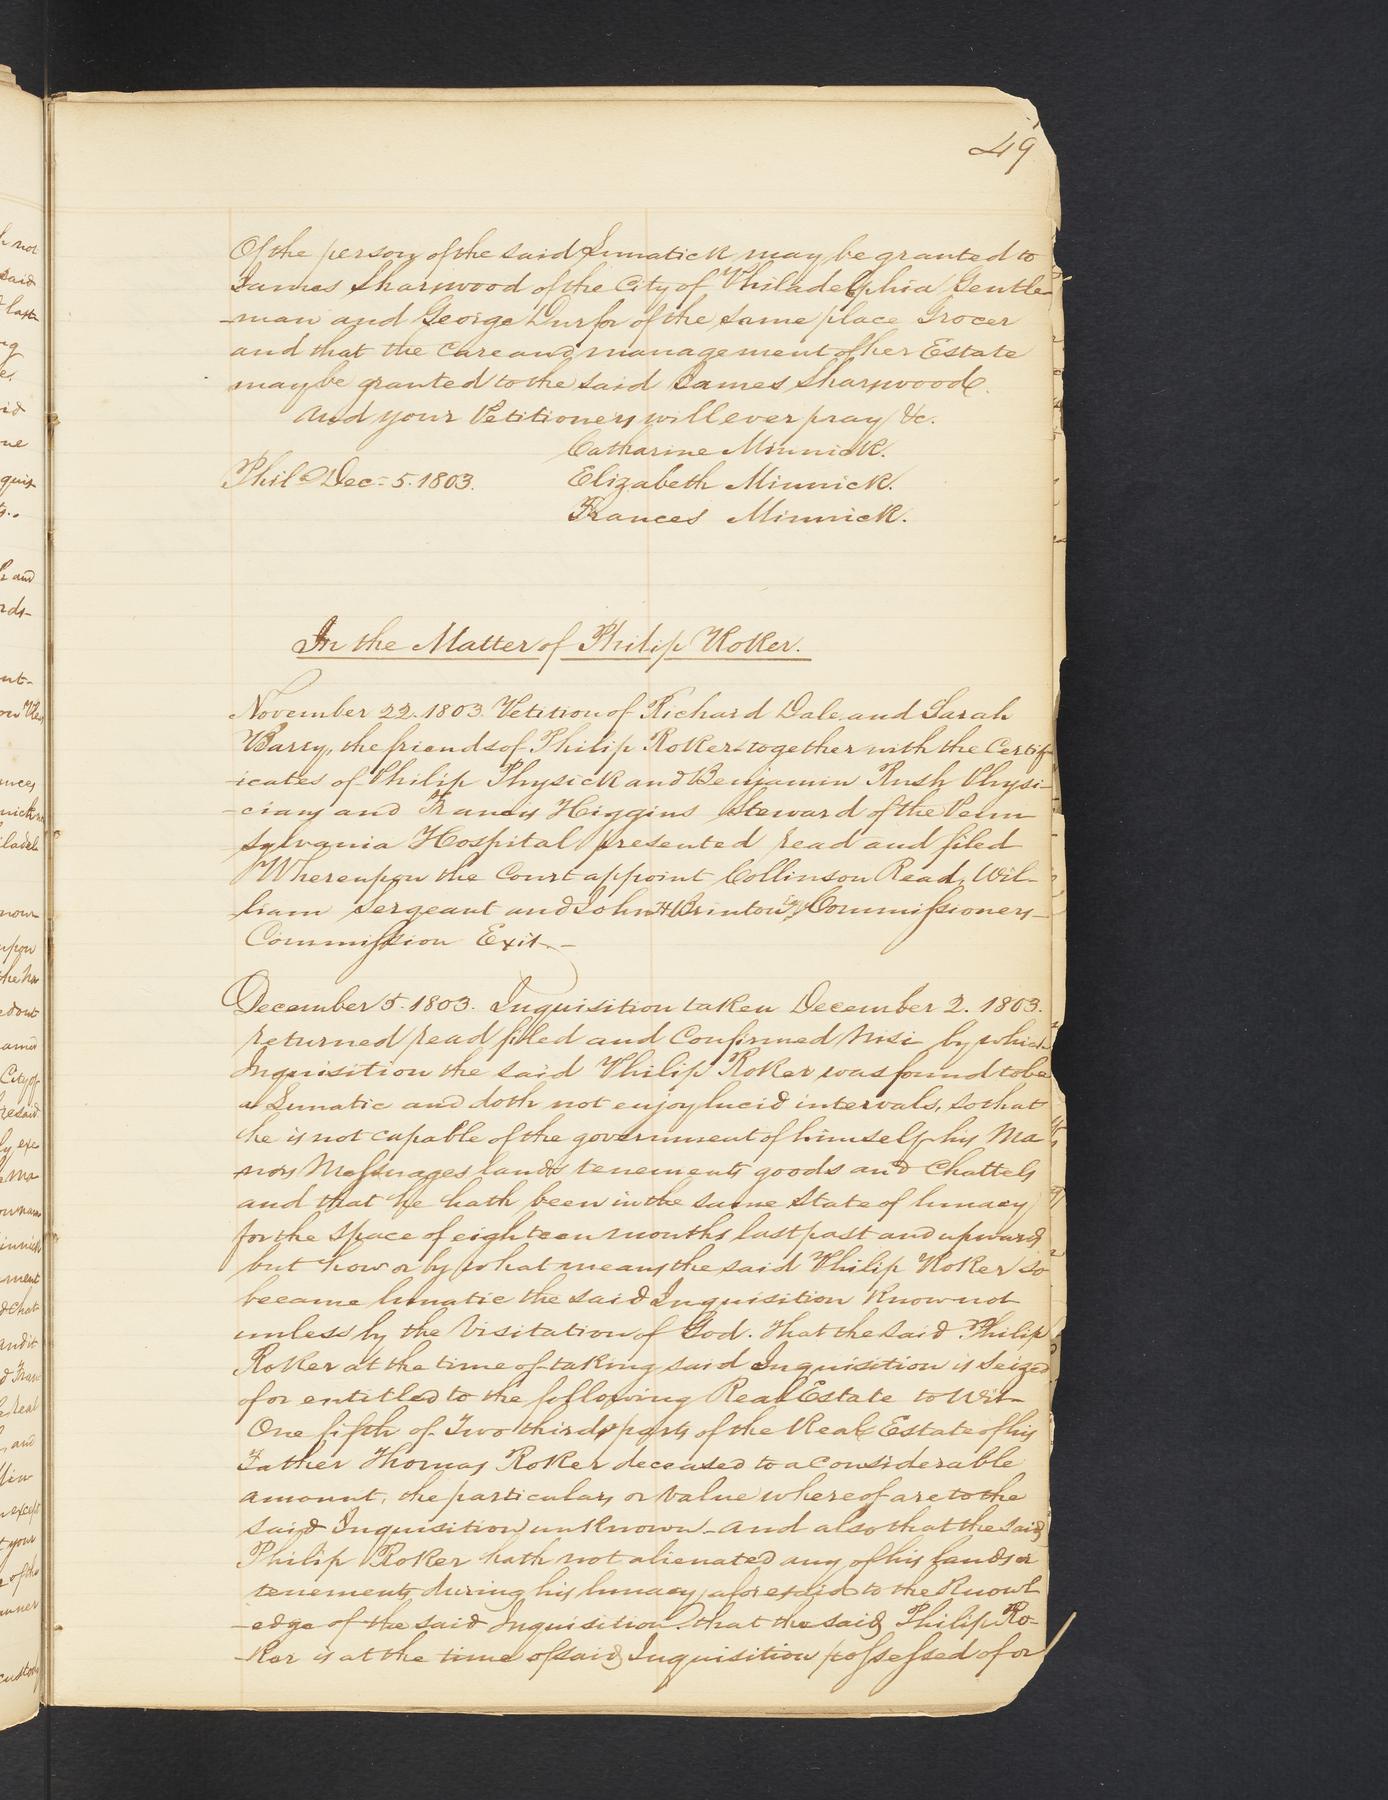 49
Of the person of the said Lunatick may be granted to
James Sharswood of the City of Philadelphia Gentle-
-man and George Durfor of the same place Grocer
and that the care and management of her Estate
may be granted to the said James Sharswood.
And your Petitioners will ever pray &c.
Catharine Minnick.
Phila Dec. 5. 1803. Elizabeth Minnick.
Frances Minnick.
In the Matter of Philip Roker.
November 22. 1803. Petition of Richard Dale and Sarah
Barry, the friends of Philip Roker together with the Certif-
-icates of Philip Physick and Benjamin Rush Physi-
-cians and Francis Higgins Steward of the Penn
sylvania Hospital presented read and filed
Whereupon the Court appoint Collinson Read, Wil-
liam Sergeant and John H Brinton Esqs Commissioners—
Commission Exit.—
December 5. 1803. Inquisition taken December 2. 1803.
returned read filed and Confirmed Nisi by which
Inquisition the said Philip Roker was found to be
a Lunatic and doth not enjoy lucid intervals, so that
he is not capable of the government of himself his Ma
nors Messuages lands tenements goods and Chattels
and that he hath been in the same State of lunacy
for the space of eighteen months last past and upwards
but how or by what means the said Philip Roker so
became lunatic the said Inquisition Know not
unless by the Visitation of God. That the said Philip
Roker at the time of taking said Inquisition is Seized
of or entitled to the following Real Estate to Wit—
One fifth of Two thirds parts of the Real Estate of his
Father Thomas Roker deceased to a Considerable
amount, the particulars or Value whereof are to the
said Inquisition unknown—And also that the said
Philip Roker hath not alienated any of his lands or
tenements during his lunacy aforesaid to the Knowl
-edge of the said Inquisition. that the said Philip Ro-
-ker is at the time of said Inquisition possessed of or